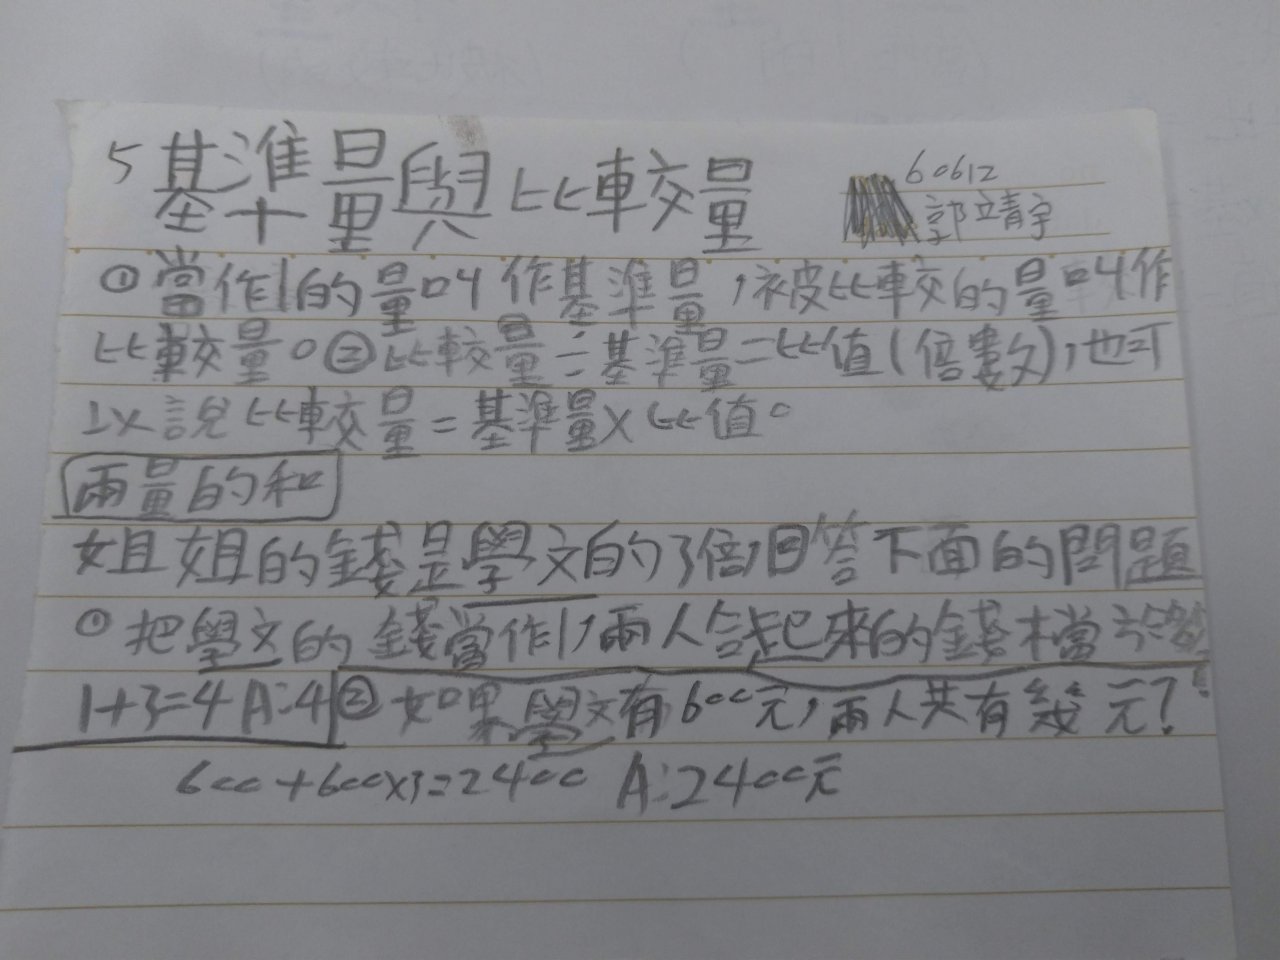 5 基準量與比較量
60612
郭立青宇
①當作1的量叫作基準量，被比較的量叫作
比較量。②比較量÷基準量=比值(倍數)，也可
以說比較量=基準量×比值。
兩量的和
姐姐的錢是學文的3倍，回答下面的問題
①把學文的錢當作1，兩人合起來的錢相當於
1+3=4 A:4 ②如果學文有600元，兩人共有幾元?
600+600×3=2400 A:2400元